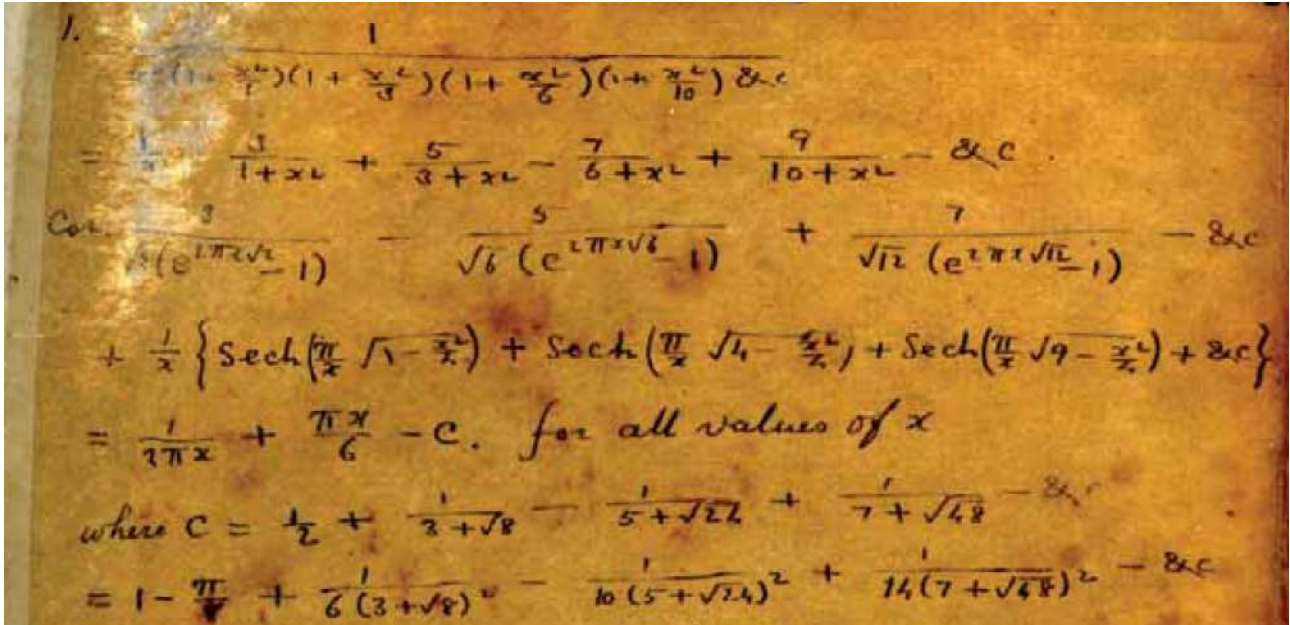 1. 1/((1 + x²/1)(1 + x²/3)(1 + x²/6)(1 + x²/10) &c)
= 1/x² 3/(1 + x²) + 5/(3 + x²) − 7/(6 + x²) + 9/(10 + x²) − &c.
Cor. 3/(√2 (e^{2πx√2} − 1)) − 5/(√6 (e^{2πx√6} − 1)) + 7/(√12 (e^{2πx√12} − 1)) − &c
+ 1/x {Sech(π/x √(1 − x²/4)) + Sech(π/x √(4 − x²/4)) + Sech(π/x √(9 − x²/4)) + &c}
= 1/(2πx) + πx/6 − C. for all values of x
where C = 1/2 + 1/(3 + √8) − 1/(5 + √24) + 1/(7 + √48) − &c
= 1 − π/8 + 1/(6(3 + √8)²) − 1/(10(5 + √24)²) + 1/(14(7 + √48)²) − &c